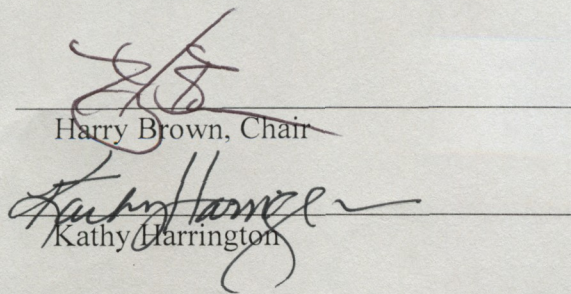 Harry Brown, Chair
Kathy Harrington
Kathy Harrington